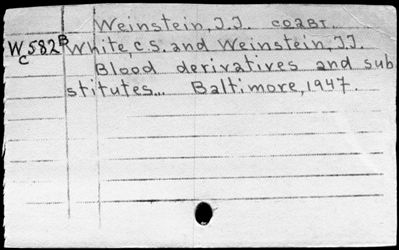 Weinstein, J.J. COABI.
WC582B White, C.S. and Weinstein, J.J.
Blood derivatives and sub
stitutes... Baltimore, 1947.